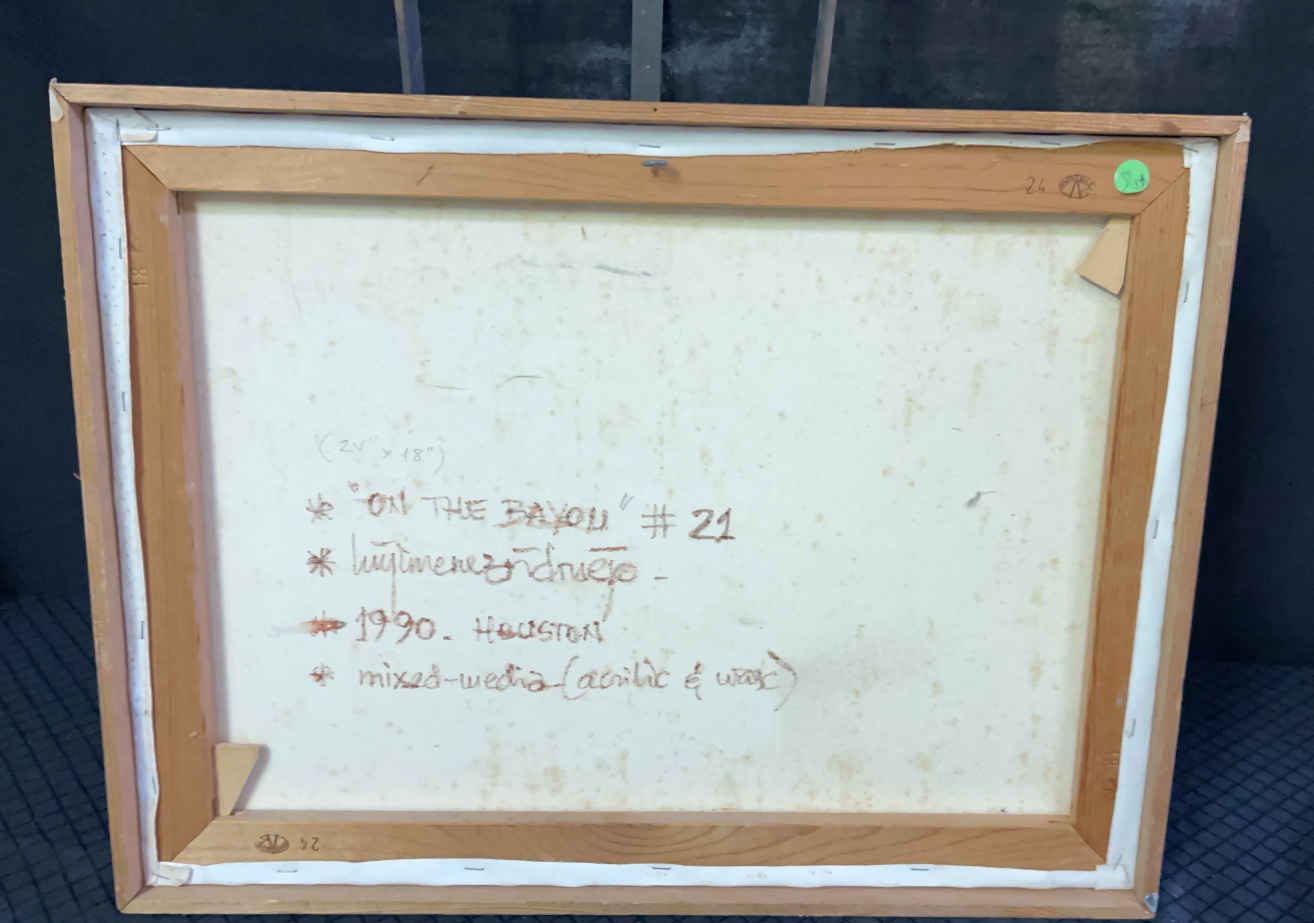 24
(24" x 18")
* "ON THE BAYOU" # 21
* 1990. HOUSTON
* mixed-media (acrilic & wax)
24